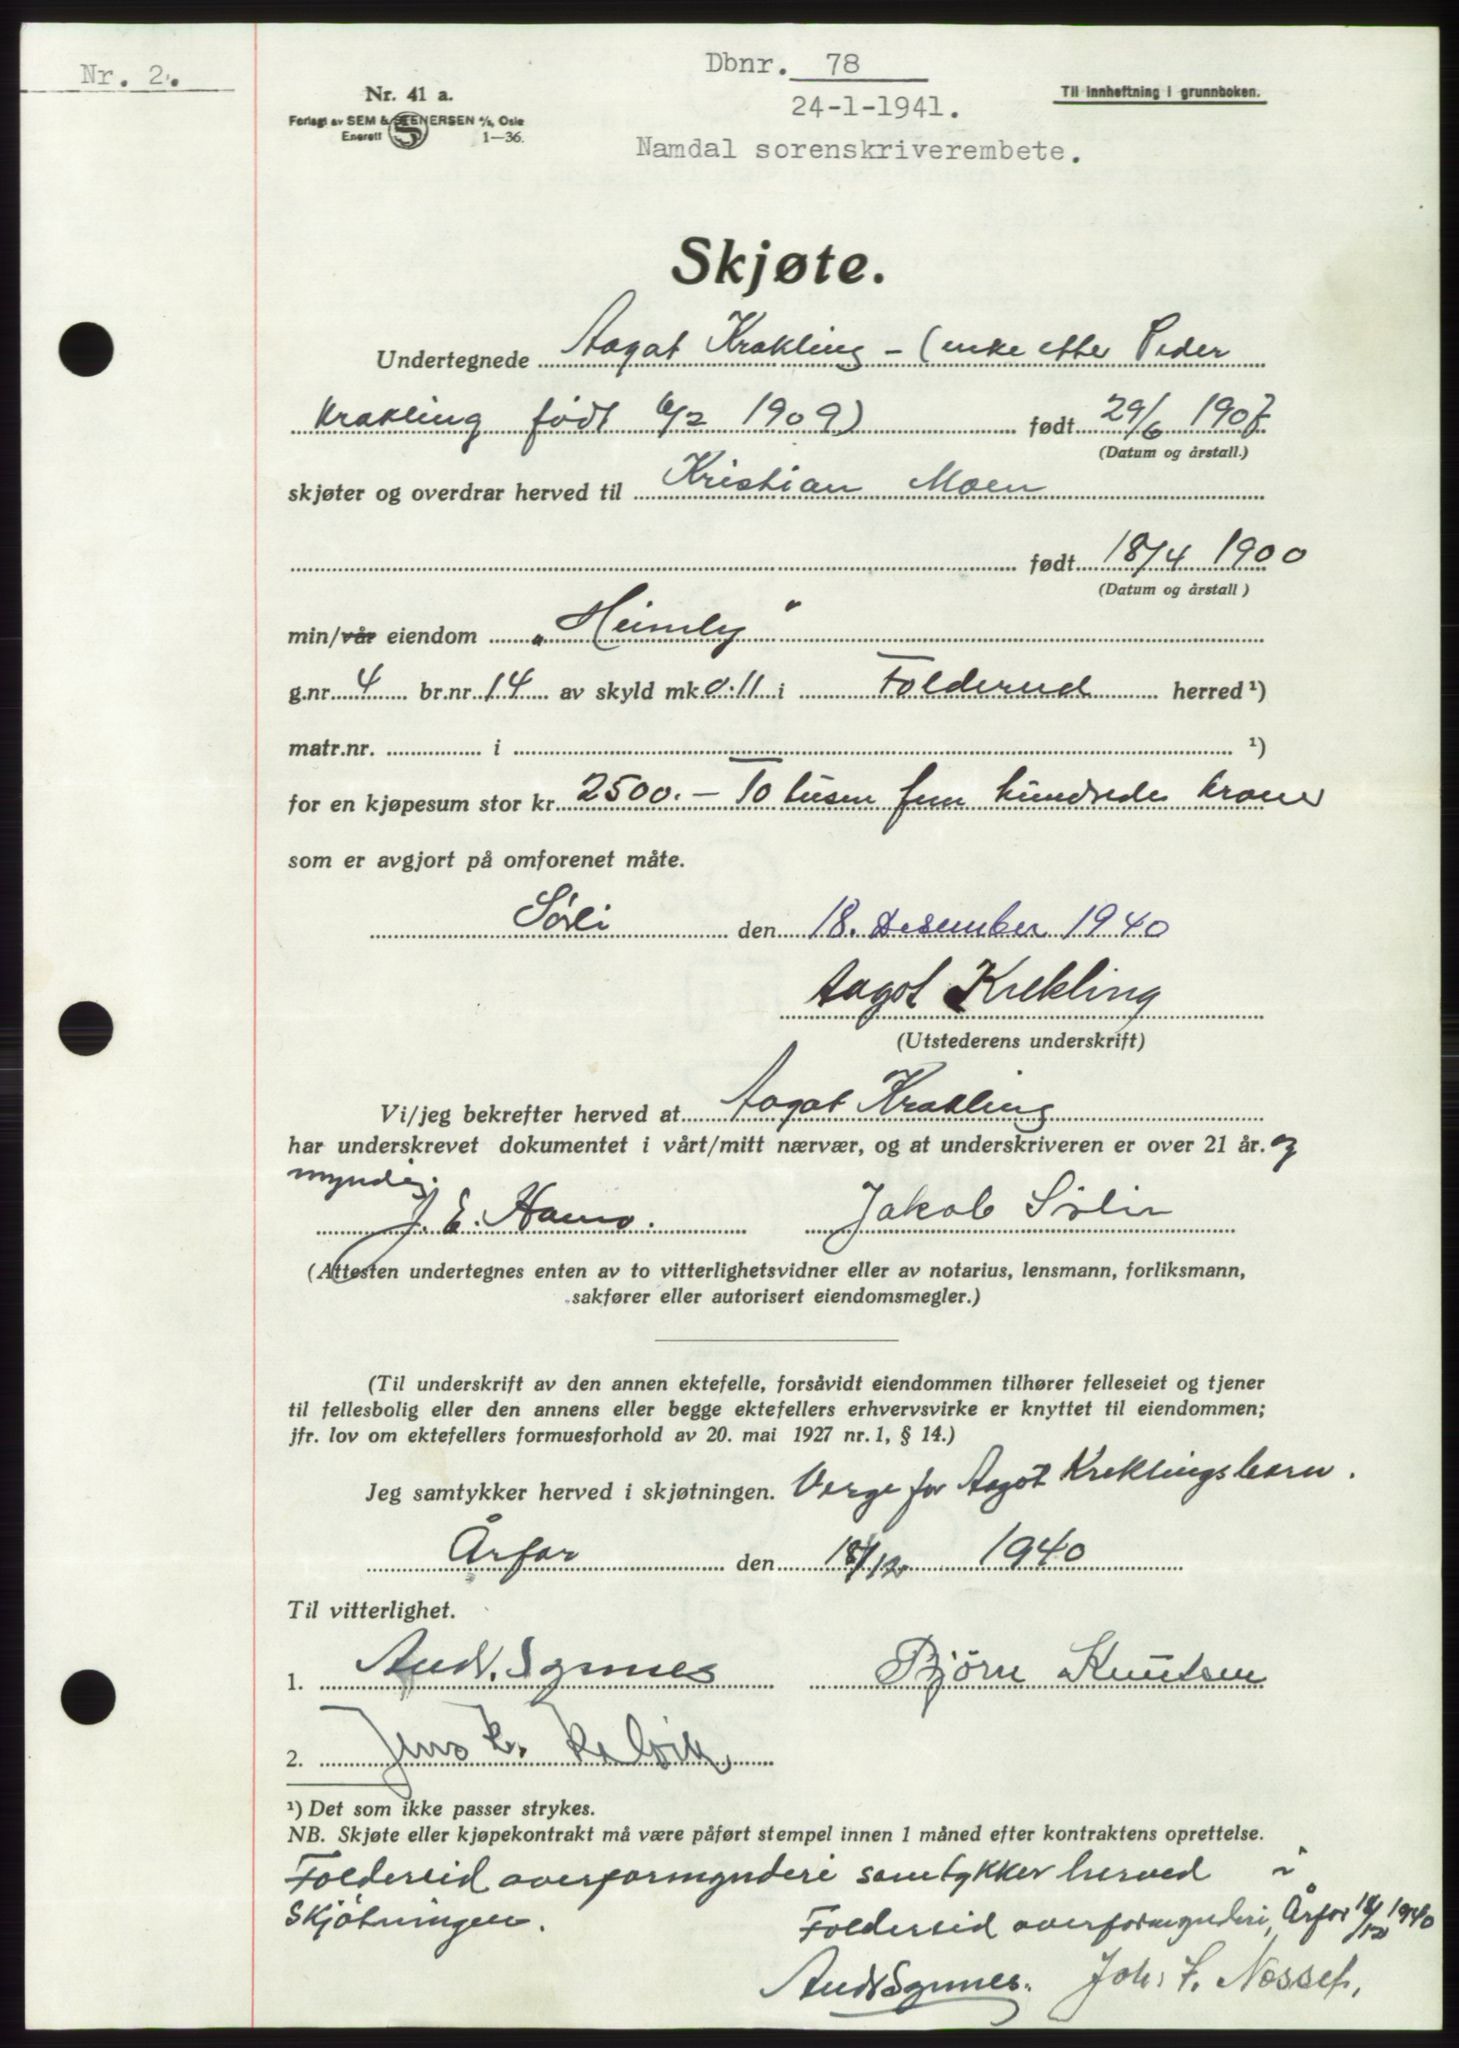 Nr. 2.
Dbnr. 78
24-1-1941.
Namdal sorenskriverembete.
Nr. 41 a.
Forlagt av SEM & STENERSEN A/S, Oslo
Enerett 1—36.
Til innheftning i grunnboken.
Skjøte.
Undertegnede Aagot Krakling - (enke etter Peder
Krakling født 6/2 1909) født 29/6 1907
(Datum og årstall.)
skjøter og overdrar herved til Kristian Moen
født 18/4 1900
(Datum og årstall)
min/vår eiendom „Heimly"
g.nr. 4 br.nr. 14 av skyld mk. 0.11 i Foldereid herred ¹)
matr.nr. i ¹)
for en kjøpesum stor kr. 2500.- To tusen fem hundrede kroner
som er avgjort på omforenet måte.
Sørli den 18. desember 1940
Aagot Krekling
(Utstederens underskrift)
Vi/jeg bekrefter herved at Aagot Krakling
har underskrevet dokumentet i vårt/mitt nærvær, og at underskriveren er over 21 år. og
myndig.
J. E. Hamo. Jakob Sørli
(Attesten undertegnes enten av to vitterlighetsvidner eller av notarius, lensmann, forliksmann,
sakfører eller autorisert eiendomsmegler.)
(Til underskrift av den annen ektefelle, forsåvidt eiendommen tilhører felleseiet og tjener
til fellesbolig eller den annens eller begge ektefellers erhvervsvirke er knyttet til eiendommen;
jfr. lov om ektefellers formuesforhold av 20. mai 1927 nr. 1, § 14.)
Jeg samtykker herved i skjøtningen. Verge for Aagot Kreklings barn.
Årfor den 18/12 1940
Til vitterlighet.
1. Andr. Synnes Bjørn Knutsen
2. Jens K.
¹) Det som ikke passer strykes.
NB. Skjøte eller kjøpekontrakt må være påført stempel innen 1 måned efter kontraktens oprettelse.
Foldereid overformynderi samtykker herved i
Skjøtningen.
Foldereid overformynderi, Årfor 18/12 1940
Andr Synnes. Joh. F.